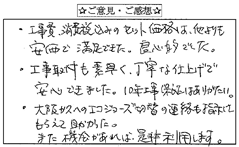 ☆ご意見・ご感想☆
・工事費、消費税込みのセット価格は、他よりも
安価で満足できた。良心的でした。
・工事取付も素早く、丁寧な仕上げで
安心できました。10年工事保証はありがたい。
・大阪ガスへのエコジョーズ切替の連絡も指示して
もらえて助かった。
また機会があれば、是非利用します。